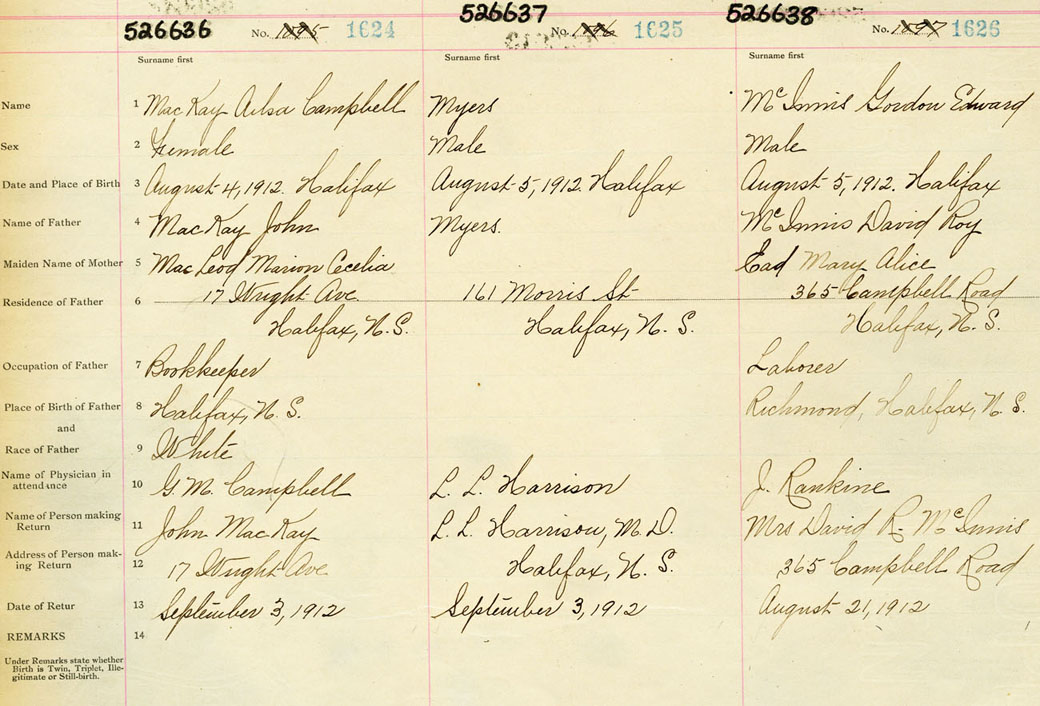 526636 No. 1095 1624 526637 No. 1096 1625 526638 No. 1097 1626
Surname first Surname first Surname first
Name 1 MacKay Ailsa Campbell Myers McInnis Gordon Edward
Sex 2 Female Male Male
Date and Place of Birth 3 August 4, 1912. Halifax August 5, 1912. Halifax August 5, 1912. Halifax
Name of Father 4 MacKay John Myers. McInnis David Roy
Maiden Name of Mother 5 MacLeod Marion Cecelia Ead Mary Alice
Residence of Father 6 17 Wright Ave 161 Morris St 365 Campbell Road
Halifax, N.S. Halifax, N.S. Halifax, N.S.
Occupation of Father 7 Bookkeeper Laborer
Place of Birth of Father 8 Halifax, N.S. Richmond, Halifax, N.S.
and
Race of Father 9 White
Name of Physician in
attendance 10 G.M. Campbell L. L. Harrison J. Rankine
Name of Person making
Return 11 John MacKay L.L. Harrison, M.D. Mrs David R. McInnis
Address of Person mak-
ing Return 12 17 Wright Ave Halifax, N.S. 365 Campbell Road
Date of Retur 13 September 3, 1912 September 3, 1912 August 21, 1912
REMARKS 14
Under Remarks state whether
Birth is Twin, Triplet, Ille-
gitimate or Still-birth.